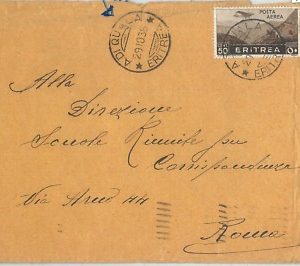 ADI QUALA
29.10.38
ERITREA
POSTA
AEREA
50
ERITREA
Alla
Direzione
Scuole Riunite per
Corrispondenza
Via Arno 44
Roma